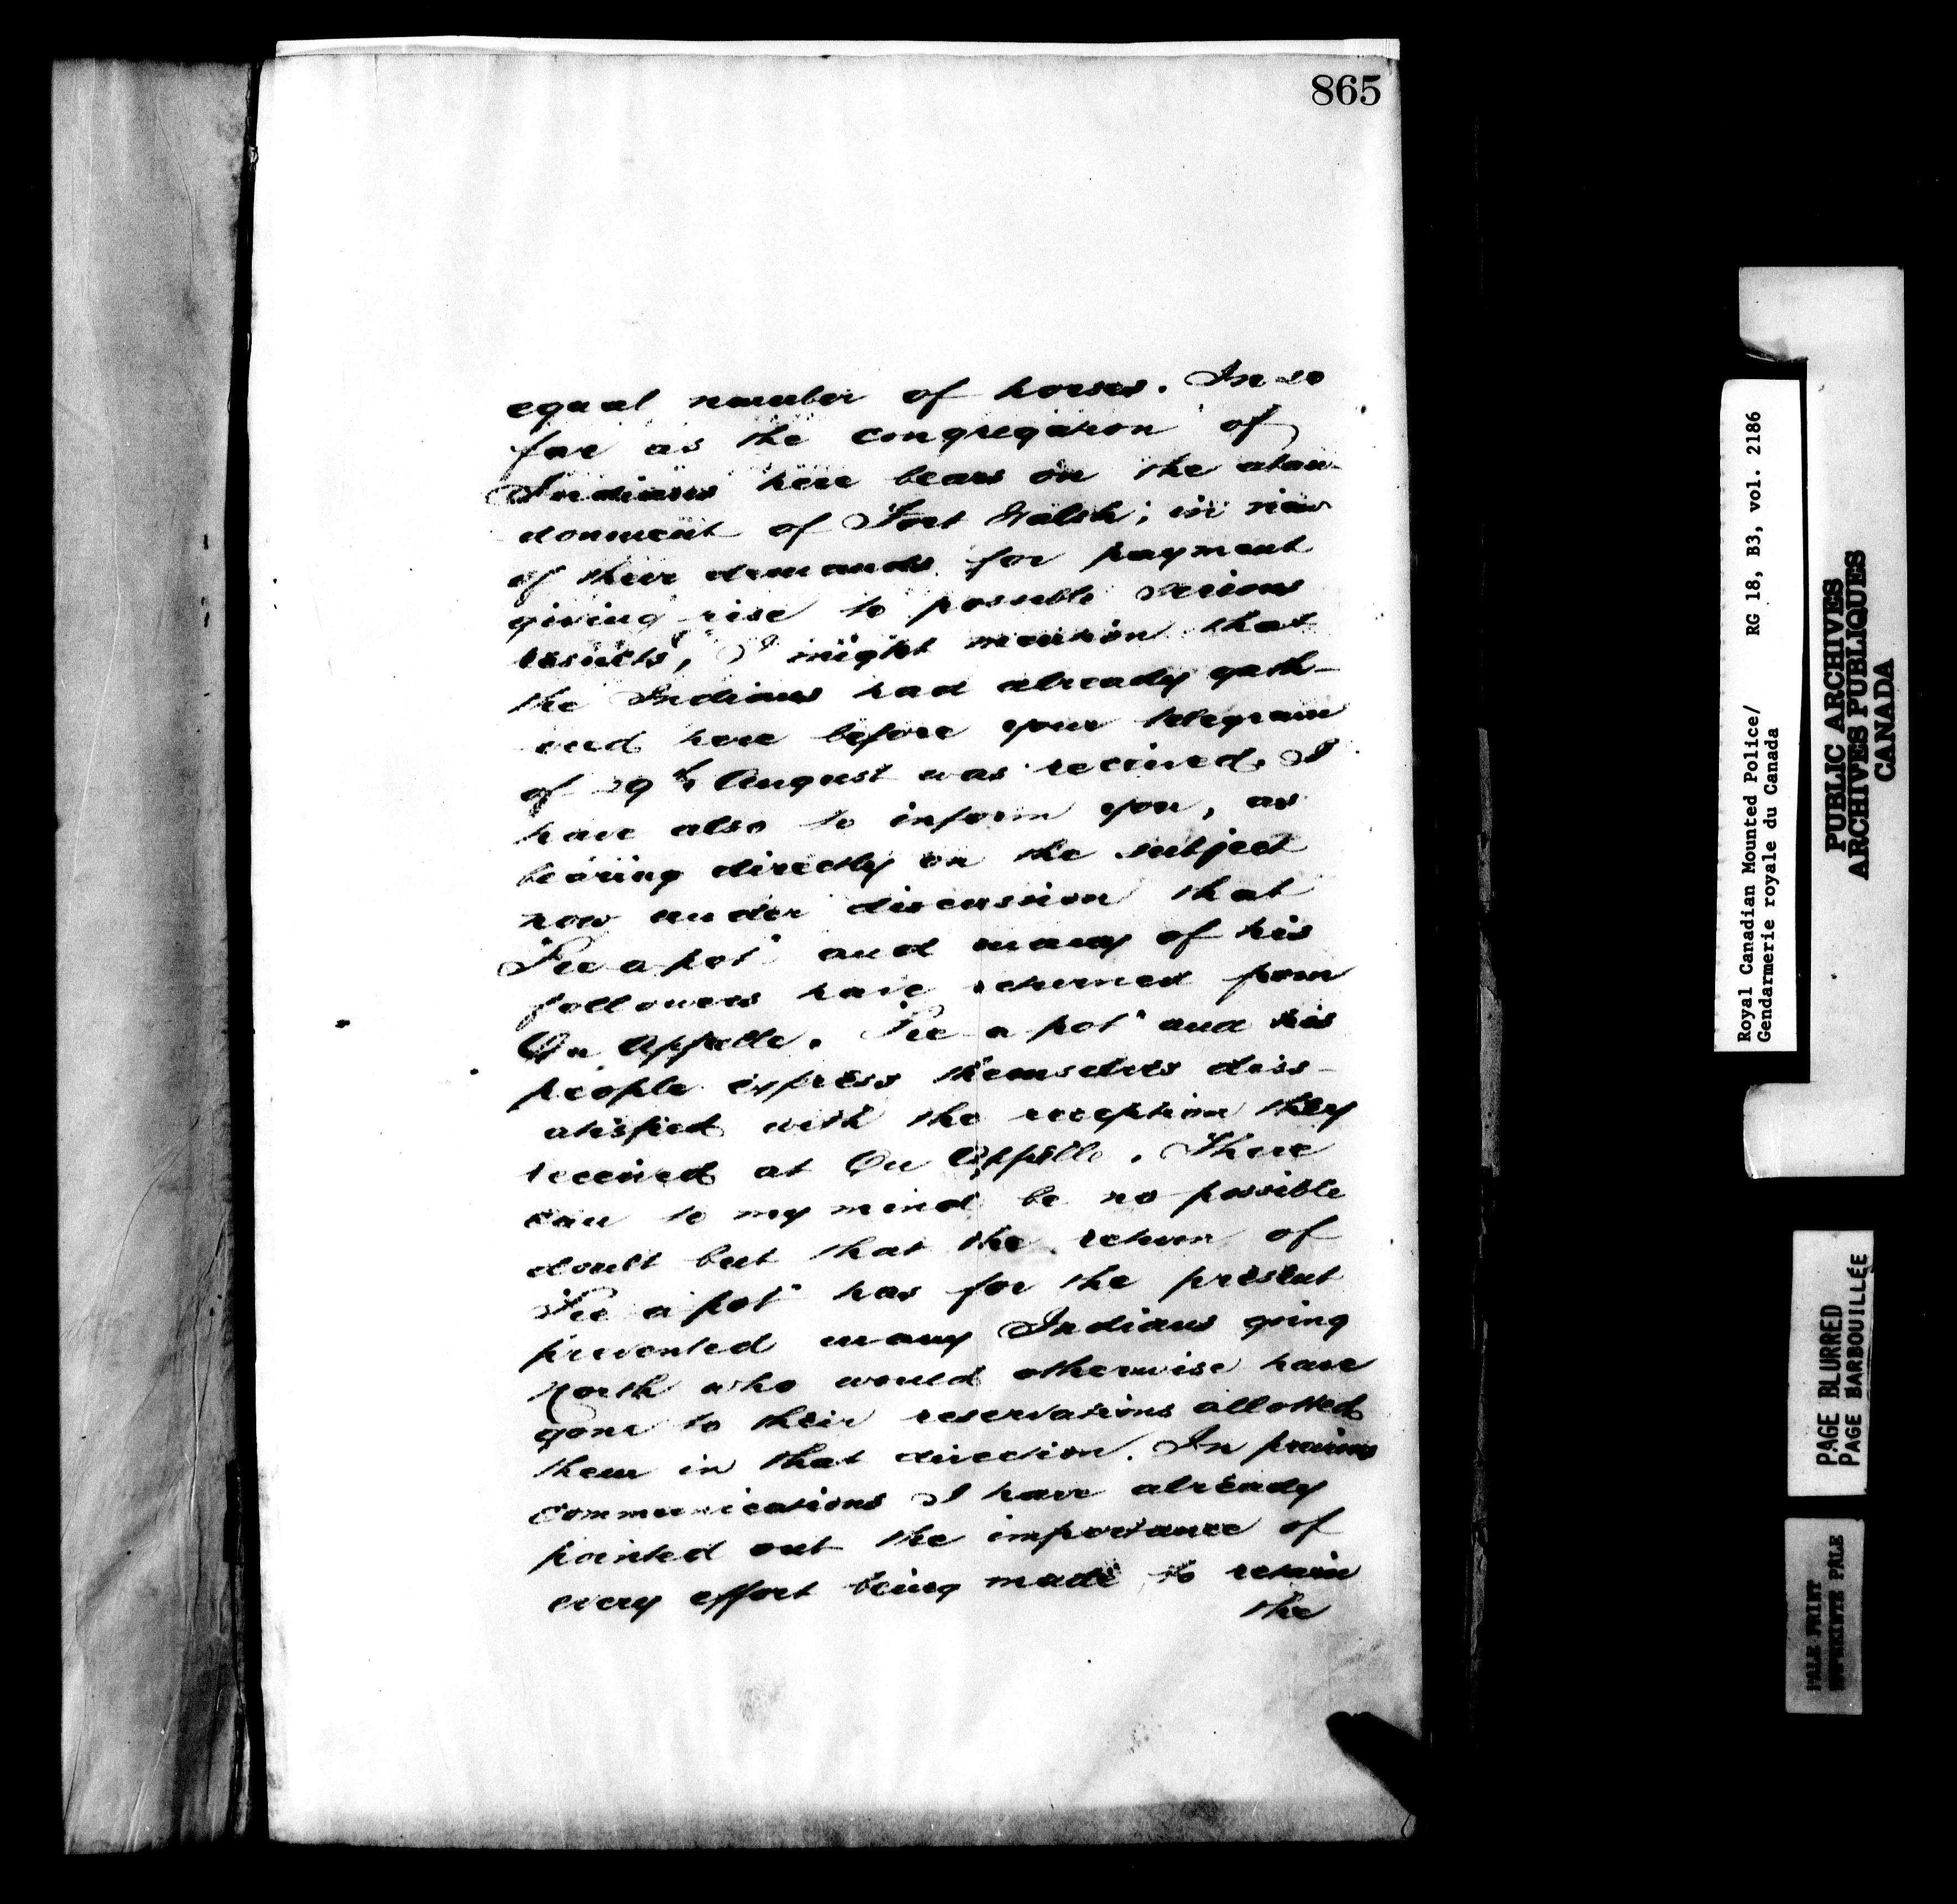 865
equal number of horses. In so
far as the congregation of
Indians here bears on the aban-
donment of Fort Walsh; in view
of their demands for payment
giving rise to possible serious
results, I might mention that
the Indians had already gath-
ered here before your telegram
of 29th August was received. I
have also to inform you, as
bearing directly on the subject
now under discussion that
"Pie a pot" and many of his
followers have returned from
Qu Appelle. "Pie a pot" and his
people express themselves diss-
atisfied with the reception they
received at Qu Appelle. There
can to my mind be no possible
doubt but that the return of
"Pie a pot" has for the present
prevented many Indians going
North who would otherwise have
gone to their reservations allotted
them in that direction. In previous
communications I have already
pointed out the importance of
every effort being made to retain
the
Royal Canadian Mounted Police/ RG 18, B3, vol. 2186
Gendarmerie royale du Canada
PUBLIC ARCHIVES
ARCHIVES PUBLIQUES
CANADA
PAGE BLURRED
PAGE BARBOUILLÉE
PALE PRINT
IMPRIMERIE PALE